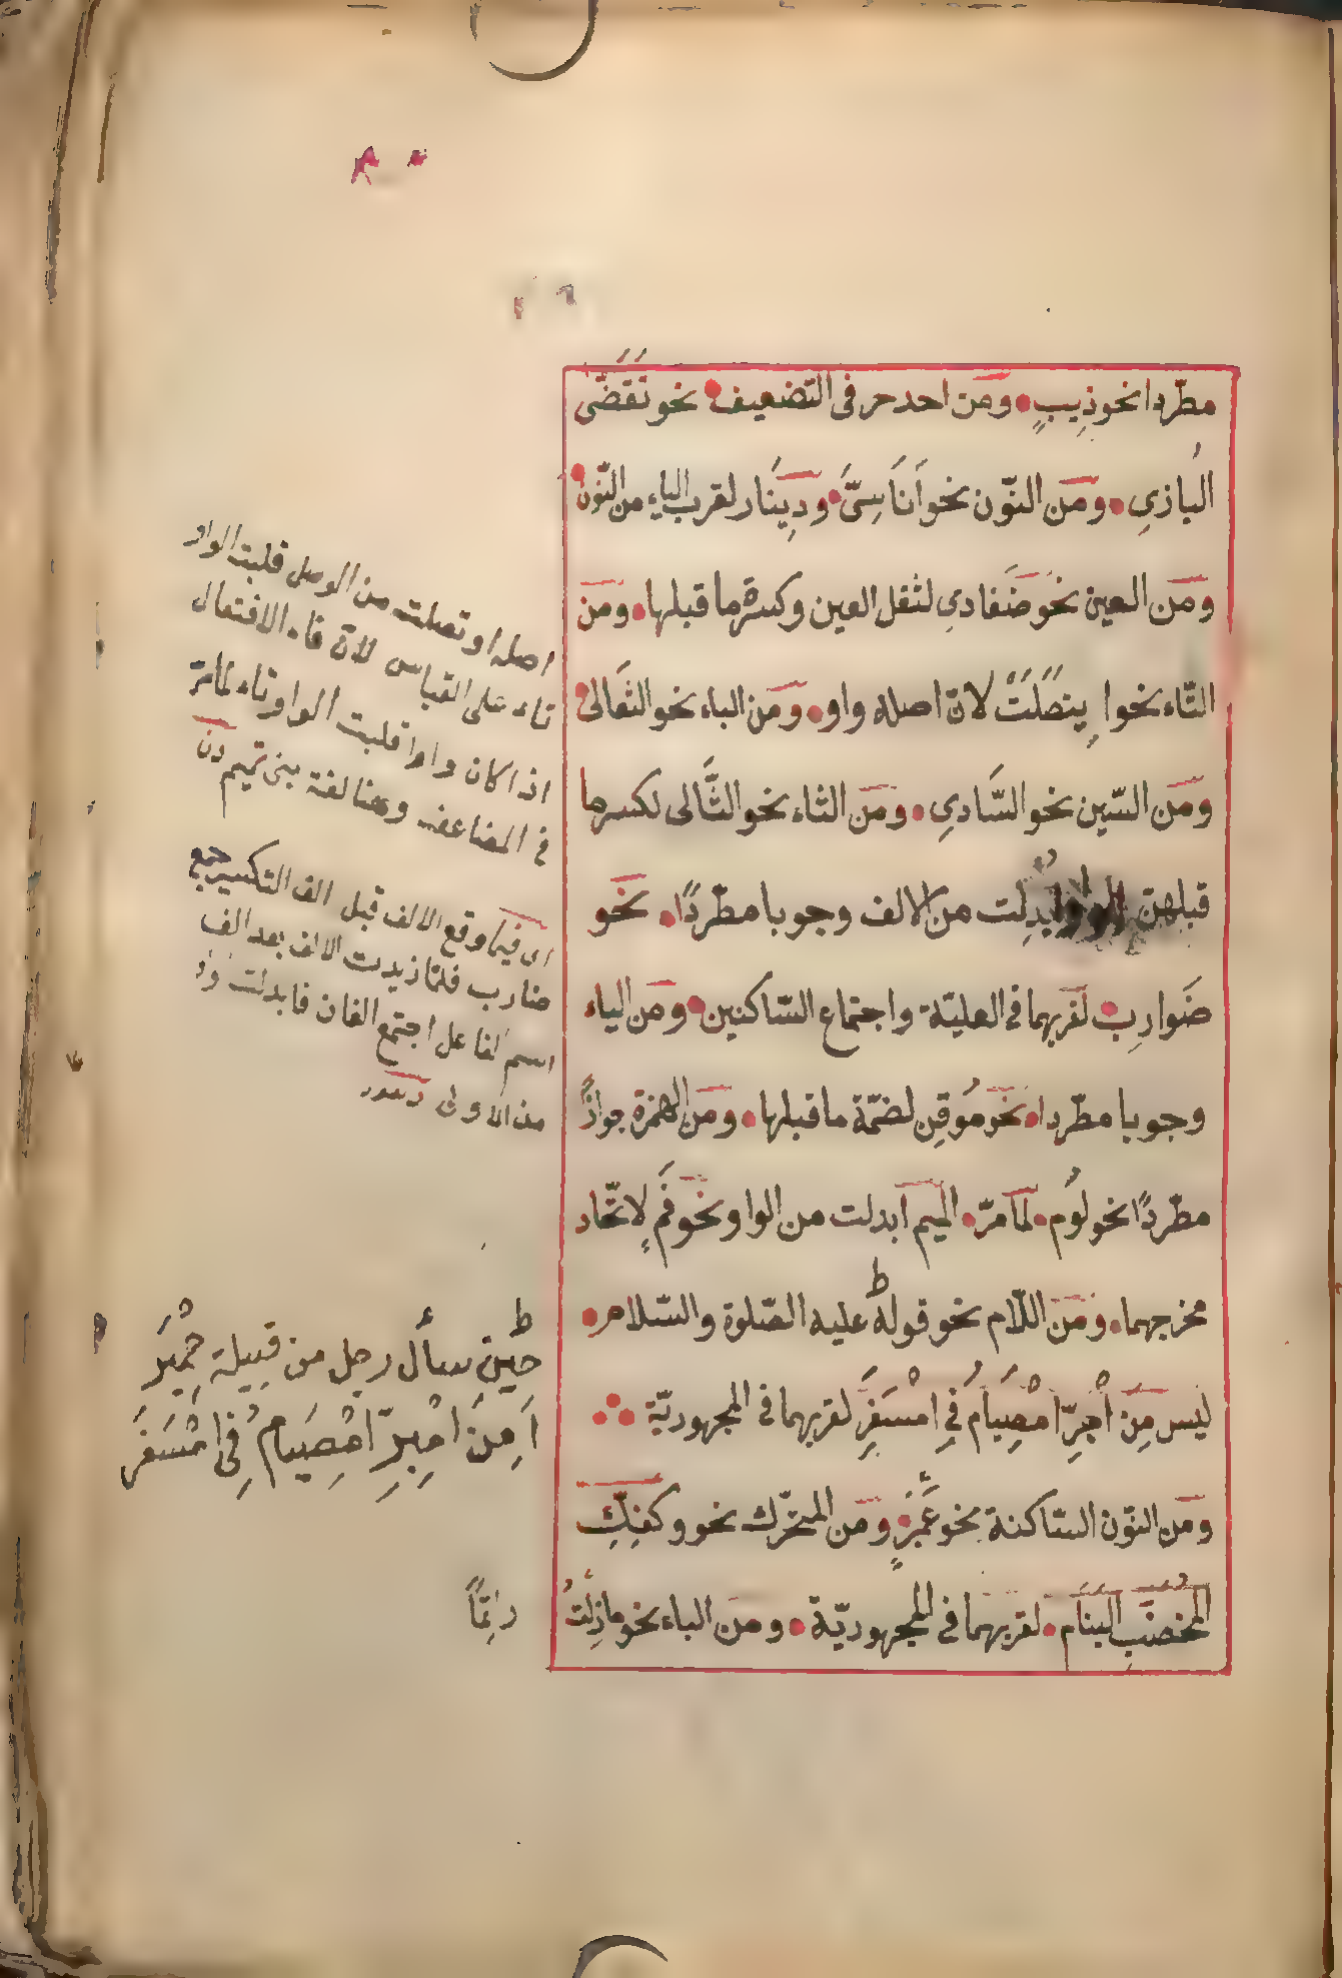 مطّردا نحو ذِيبٍ ومن احد حرفى التضعيف نحو تَقَضّى
البازىِ ومن النّون نحو اَناَسِىَّ ودِينَار لقرب الياء من النّون
ومن العين نحو ضَفادىِ لثقل العين وكسرة ما قبلها ومن
التّاء نحو اِيتصَلَتْ لانّ اصله واو ومن الباء نحو الثعَالى
ومن السّين نحو السَّادىِ ومن الثاء نحو الثَّالى لكسر ما
قبلهنّ الواو اُبدِلت من الالف وجوبا مطّردًا نحو
ضَوارِب لقربهما فى العليّة واجتماع السّاكنين ومن الياء
وجوبا مطّردا نحو مُوقِن لضمّة ما قبلها ومن الهمزة جوازًا
مطّردًا نحو لُوم لمامرّ الميم ابدلت من الواو نحو فَمٍ لاتّحاد
مخرجهما ومن اللّام نحو قوله عليه الصّلوة والسّلام
ليس مِنَ اْمْبِرِّ امْصِيَامُ فِى امْسَفَرِ لقربهما فى المجهوريّة
ومن النّون السّاكنة نحو عَمْبَرٍ ومن المتحرّك نحو وكفِّكِ
المخضبِ البنَام لقربهما فى المجهوريّة ومن الباء نحو مازِلْتُ
راتِمًا
اصله اوتصلت من الوصل قلبت الواو
تاء على القياس لانّ فاء الافتعال
اذا كان واوا قلبت الواو تاء لمامرّ
فى المضاعف وهنا لغة بنى تميم
اى فيما وقع الالف قبل الف التكسير جمع
ضارب فلمّا زيدت الالف بعد الف
اسم الفاعل اجتمع الفان فابدلت واو
من الاولى
حِينَ سأل رجل من قبيلة حِمْيَر
اَمِنَ امْبِرِّ امْصِيَامُ فِى امْسَفَرِ